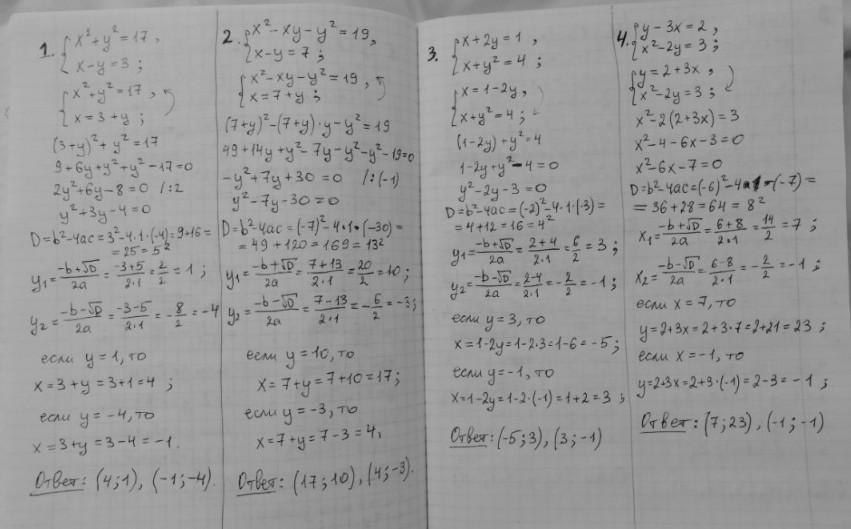 1. { x²+y²=17 ,
x-y=3 ;
{ x²+y²=17 ,
x=3+y ;
(3+y)²+y²=17
9+6y+y²+y²-17=0
2y²+6y-8=0 /:2
y²+3y-4=0
D=b²-4ac=3²-4·1·(-4)=9+16=
=25=5²
y₁=(-b+√D)/2a=(-3+5)/2·1=2/2=1 ;
y₂=(-b-√D)/2a=(-3-5)/2·1=-8/2=-4
если y=1, то
x=3+y=3+1=4 ;
если y=-4, то
x=3+y=3-4=-1.
Ответ: (4;1), (-1;-4).
2. { x²-xy-y²=19,
x-y=7 ;
{ x²-xy-y²=19 ,
x=7+y ;
(7+y)²-(7+y)·y-y²=19
49+14y+y²-7y-y²-y²-19=0
-y²+7y+30=0 /:(-1)
y²-7y-30=0
D=b²-4ac=(-7)²-4·1·(-30)=
=49+120=169=13²
y₁=(-b+√D)/2a=(7+13)/2·1=20/2=10 ;
y₂=(-b-√D)/2a=(7-13)/2·1=-6/2=-3;
если y=10, то
x=7+y=7+10=17;
если y=-3, то
x=7+y=7-3=4.
Ответ: (17;10), (4;-3).
3. { x+2y=1 ,
x+y²=4 ;
{ x=1-2y,
x+y²=4 ;
(1-2y)+y²=4
1-2y+y²-4=0
y²-2y-3=0
D=b²-4ac=(-2)²-4·1·(-3)=
=4+12=16=4²
y₁=(-b+√D)/2a=(2+4)/2·1=6/2=3 ;
y₂=(-b-√D)/2a=(2-4)/2·1=-2/2=-1 ;
если y=3, то
x=1-2y=1-2·3=1-6=-5 ;
если y=-1, то
x=1-2y=1-2·(-1)=1+2=3 ;
Ответ: (-5;3), (3;-1)
4. { y-3x=2 ,
x²-2y=3 ;
{ y=2+3x ,
x²-2y=3 ;
x²-2(2+3x)=3
x²-4-6x-3=0
x²-6x-7=0
D=b²-4ac=(-6)²-4·1·(-7)=
=36+28=64=8²
x₁=(-b+√D)/2a=(6+8)/2·1=14/2=7 ;
x₂=(-b-√D)/2a=(6-8)/2·1=-2/2=-1 ;
если x=7, то
y=2+3x=2+3·7=2+21=23 ;
если x=-1, то
y=2+3x=2+3·(-1)=2-3=-1 ;
Ответ: (7;23), (-1;-1)